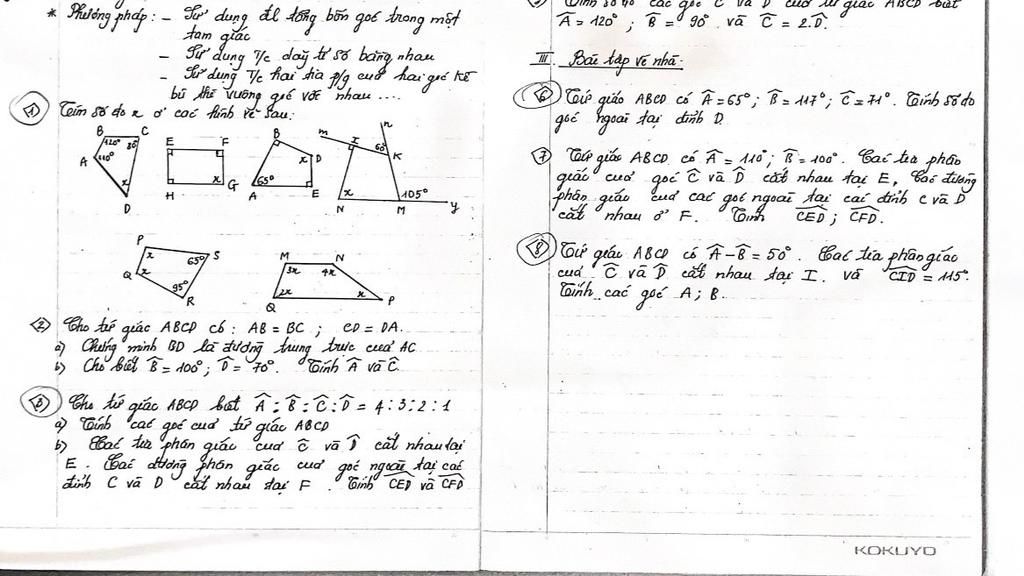 * Phương pháp : - Sử dụng đl tổng bốn goć trong một
tam giác
- Sử dụng T/c daỹ tỉ số bằng nhau
- Sử dụng T/c hai tia p/g cuả hai goć kề
bù thì vuông goć với nhau ....
1 Tìm số đo x ở các hình vẽ sau:
B C 120° 80° A 110° x D
E F H x G
B x D 65° A E
m n I 60° K x 105° N M y
P x 65° S Q x 95° R
M 3x N 4x Q 2x x P
2 Cho tứ giác ABCD có : AB = BC ; CD = DA.
a) Chứng minh BD là đường trung trực cuả AC
b) Cho biết B̂ = 100° ; D̂ = 70°. Tính Â và Ĉ.
3 Cho tứ giác ABCD biết Â : B̂ : Ĉ : D̂ = 4 : 3 : 2 : 1
a) Tính các goć cuả tứ giác ABCD
b) Các tia phân giác cuả Ĉ và D̂ cắt nhau tại
E. Các đường phân giác cuả goć ngoaì tại các
đỉnh C và D cắt nhau tại F. Tính CED và CFD
Tính số đo các goć C và D cuả tứ giác ABCD biết
Â = 120° ; B̂ = 90° và Ĉ = 2.D̂.
III. Baì tập về nhà.
6 Tứ giác ABCD có Â = 65° ; B̂ = 117° ; Ĉ = 71°. Tính số đo
goć ngoaì tại đỉnh D.
7 Tứ giác ABCD có Â = 110° ; B̂ = 100°. Các tia phân
giác cuả goć Ĉ và D̂ cắt nhau tại E, Các đường
phân giác cuả các goć ngoaì tại các đỉnh C và D
cắt nhau ở F. Tính CED ; CFD.
8 Tứ giác ABCD có Â - B̂ = 50°. Các tia phân giác
cuả Ĉ và D̂ cắt nhau tại I. và CID = 115°.
Tính các goć A ; B.
KOKUYO